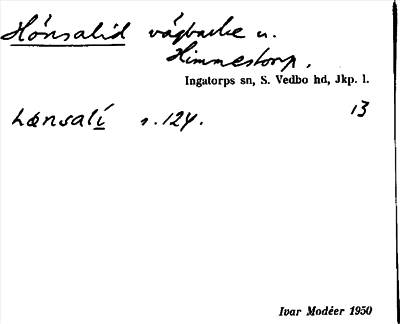 Hönsalid vägbacke u.
Himmestorp.
Ingatorps sn, S. Vedbo hd, Jkp. l.
hœnsalí s. 124.
13
Ivar Modéer 1950